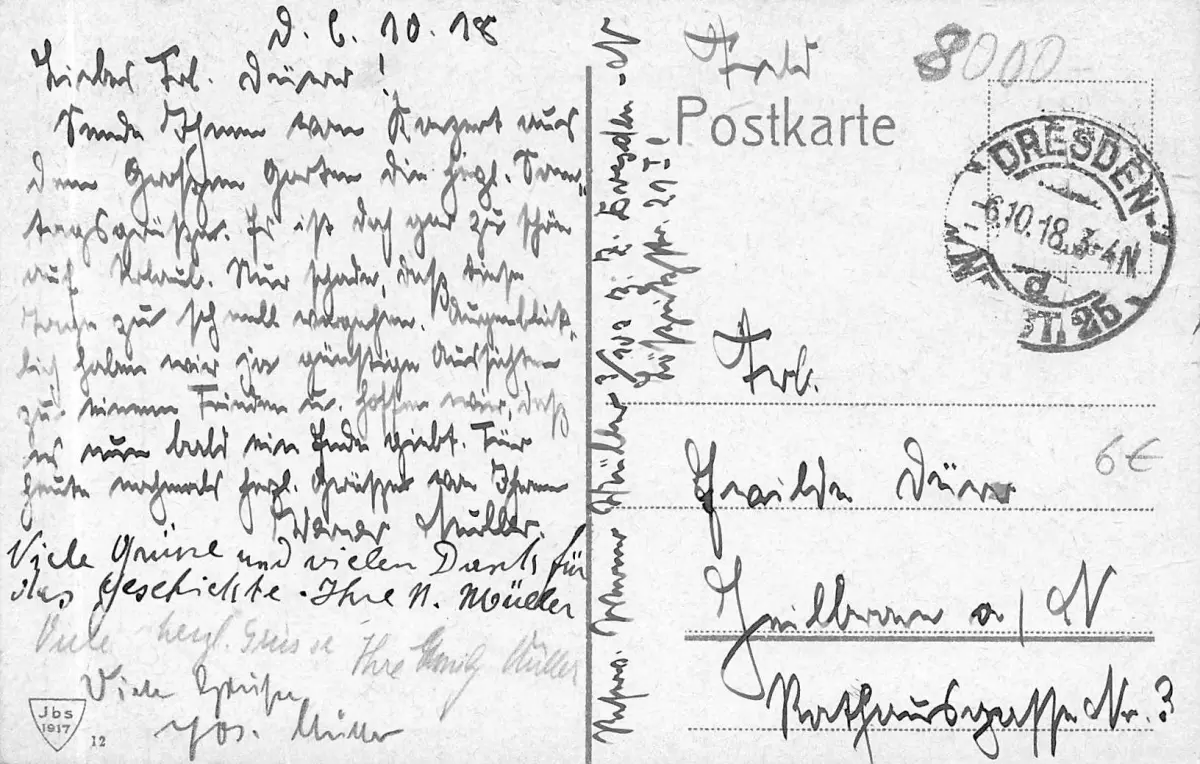 D. 6. 10. 18
Liebes Frl. Dürr!
Sende Ihnen vom Konzert aus
dem Großen Garten die herzl. Sonn-
tagsgrüße. Es ist doch gar zu schön
auf Urlaub. Nur schade, daß diese
Tage zu schnell vergehen. Augenblick-
lich haben wir ja günstige Aussichten
zu einem Frieden u. hoffen wir, daß
es nun bald ein Ende giebt. Für
heute nochmals herzl. Grüße von Ihrem
Werner Müller.
Viele Grüsse und vielen Dank für
das Geschickte. Ihre N. Müller
Viele herzl. Grüsse Ihre Emily Müller
Viele Grüße
Jos. Müller
Jbs
1917
12
Werner Müller z. Z. Dresden-N
Str. 21 I.
Feld
8000
Postkarte
DRESDEN-
NEUST. 25
6.10.18. 3-4N
d
Frl.
Dürr
6€
Heilbronn a/N
Rathausgasse Nr. 3